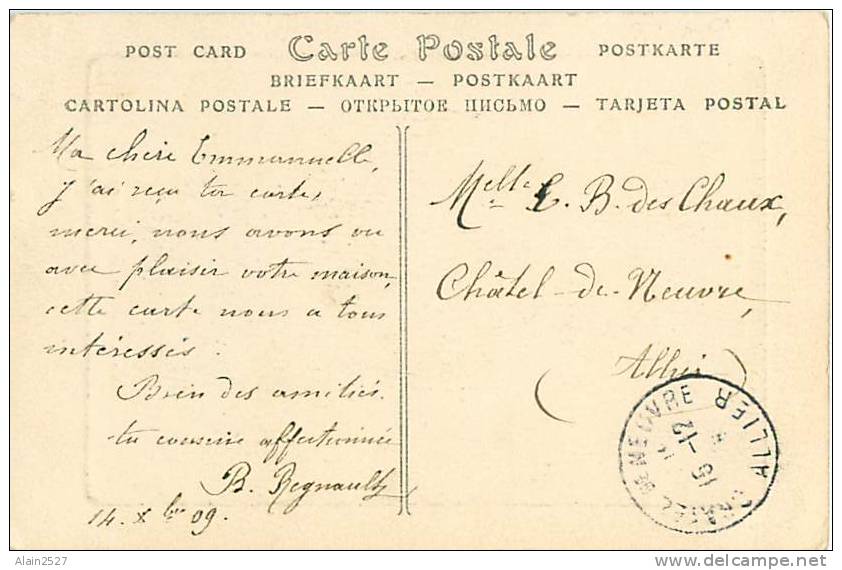 POST CARD Carte Postale POSTKARTE
BRIEFKAART — POSTKAART
CARTOLINA POSTALE — ОТКРЫТОЕ ПИСЬМО — TARJETA POSTAL
Ma chère Emmanuelle,
J'ai reçu ta carte,
merci, nous avons vu
avec plaisir votre maison,
cette carte nous a tous
intéressés.
Bien des amitiés.
ta cousine affectionnée
B. Regnault
14. Xbre 09.
Melle E. B. des Chaux,
Châtel-de-Neuvre,
(Allier)
CHATEL DE NEUVRE ALLIER
15 -12
Alain2527
delcampe.net